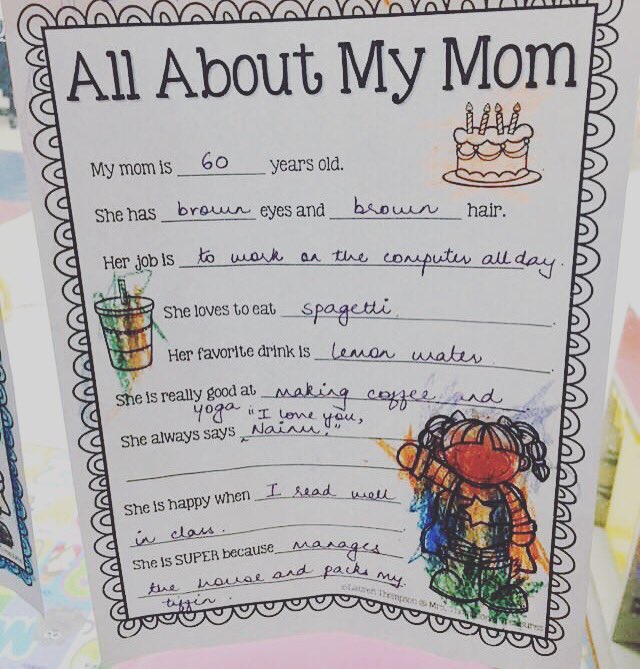 All About My Mom
My mom is 60 years old.
She has brown eyes and brown hair.
Her job is to work on the computer all day.
She loves to eat spagetti.
Her favorite drink is lemon water.
She is really good at making coffee and
yoga "I love you,
She always says Nainu."
She is happy when I read well
in class.
She is SUPER because manages
the house and packs my
tiffin.
©Lauren Thompson